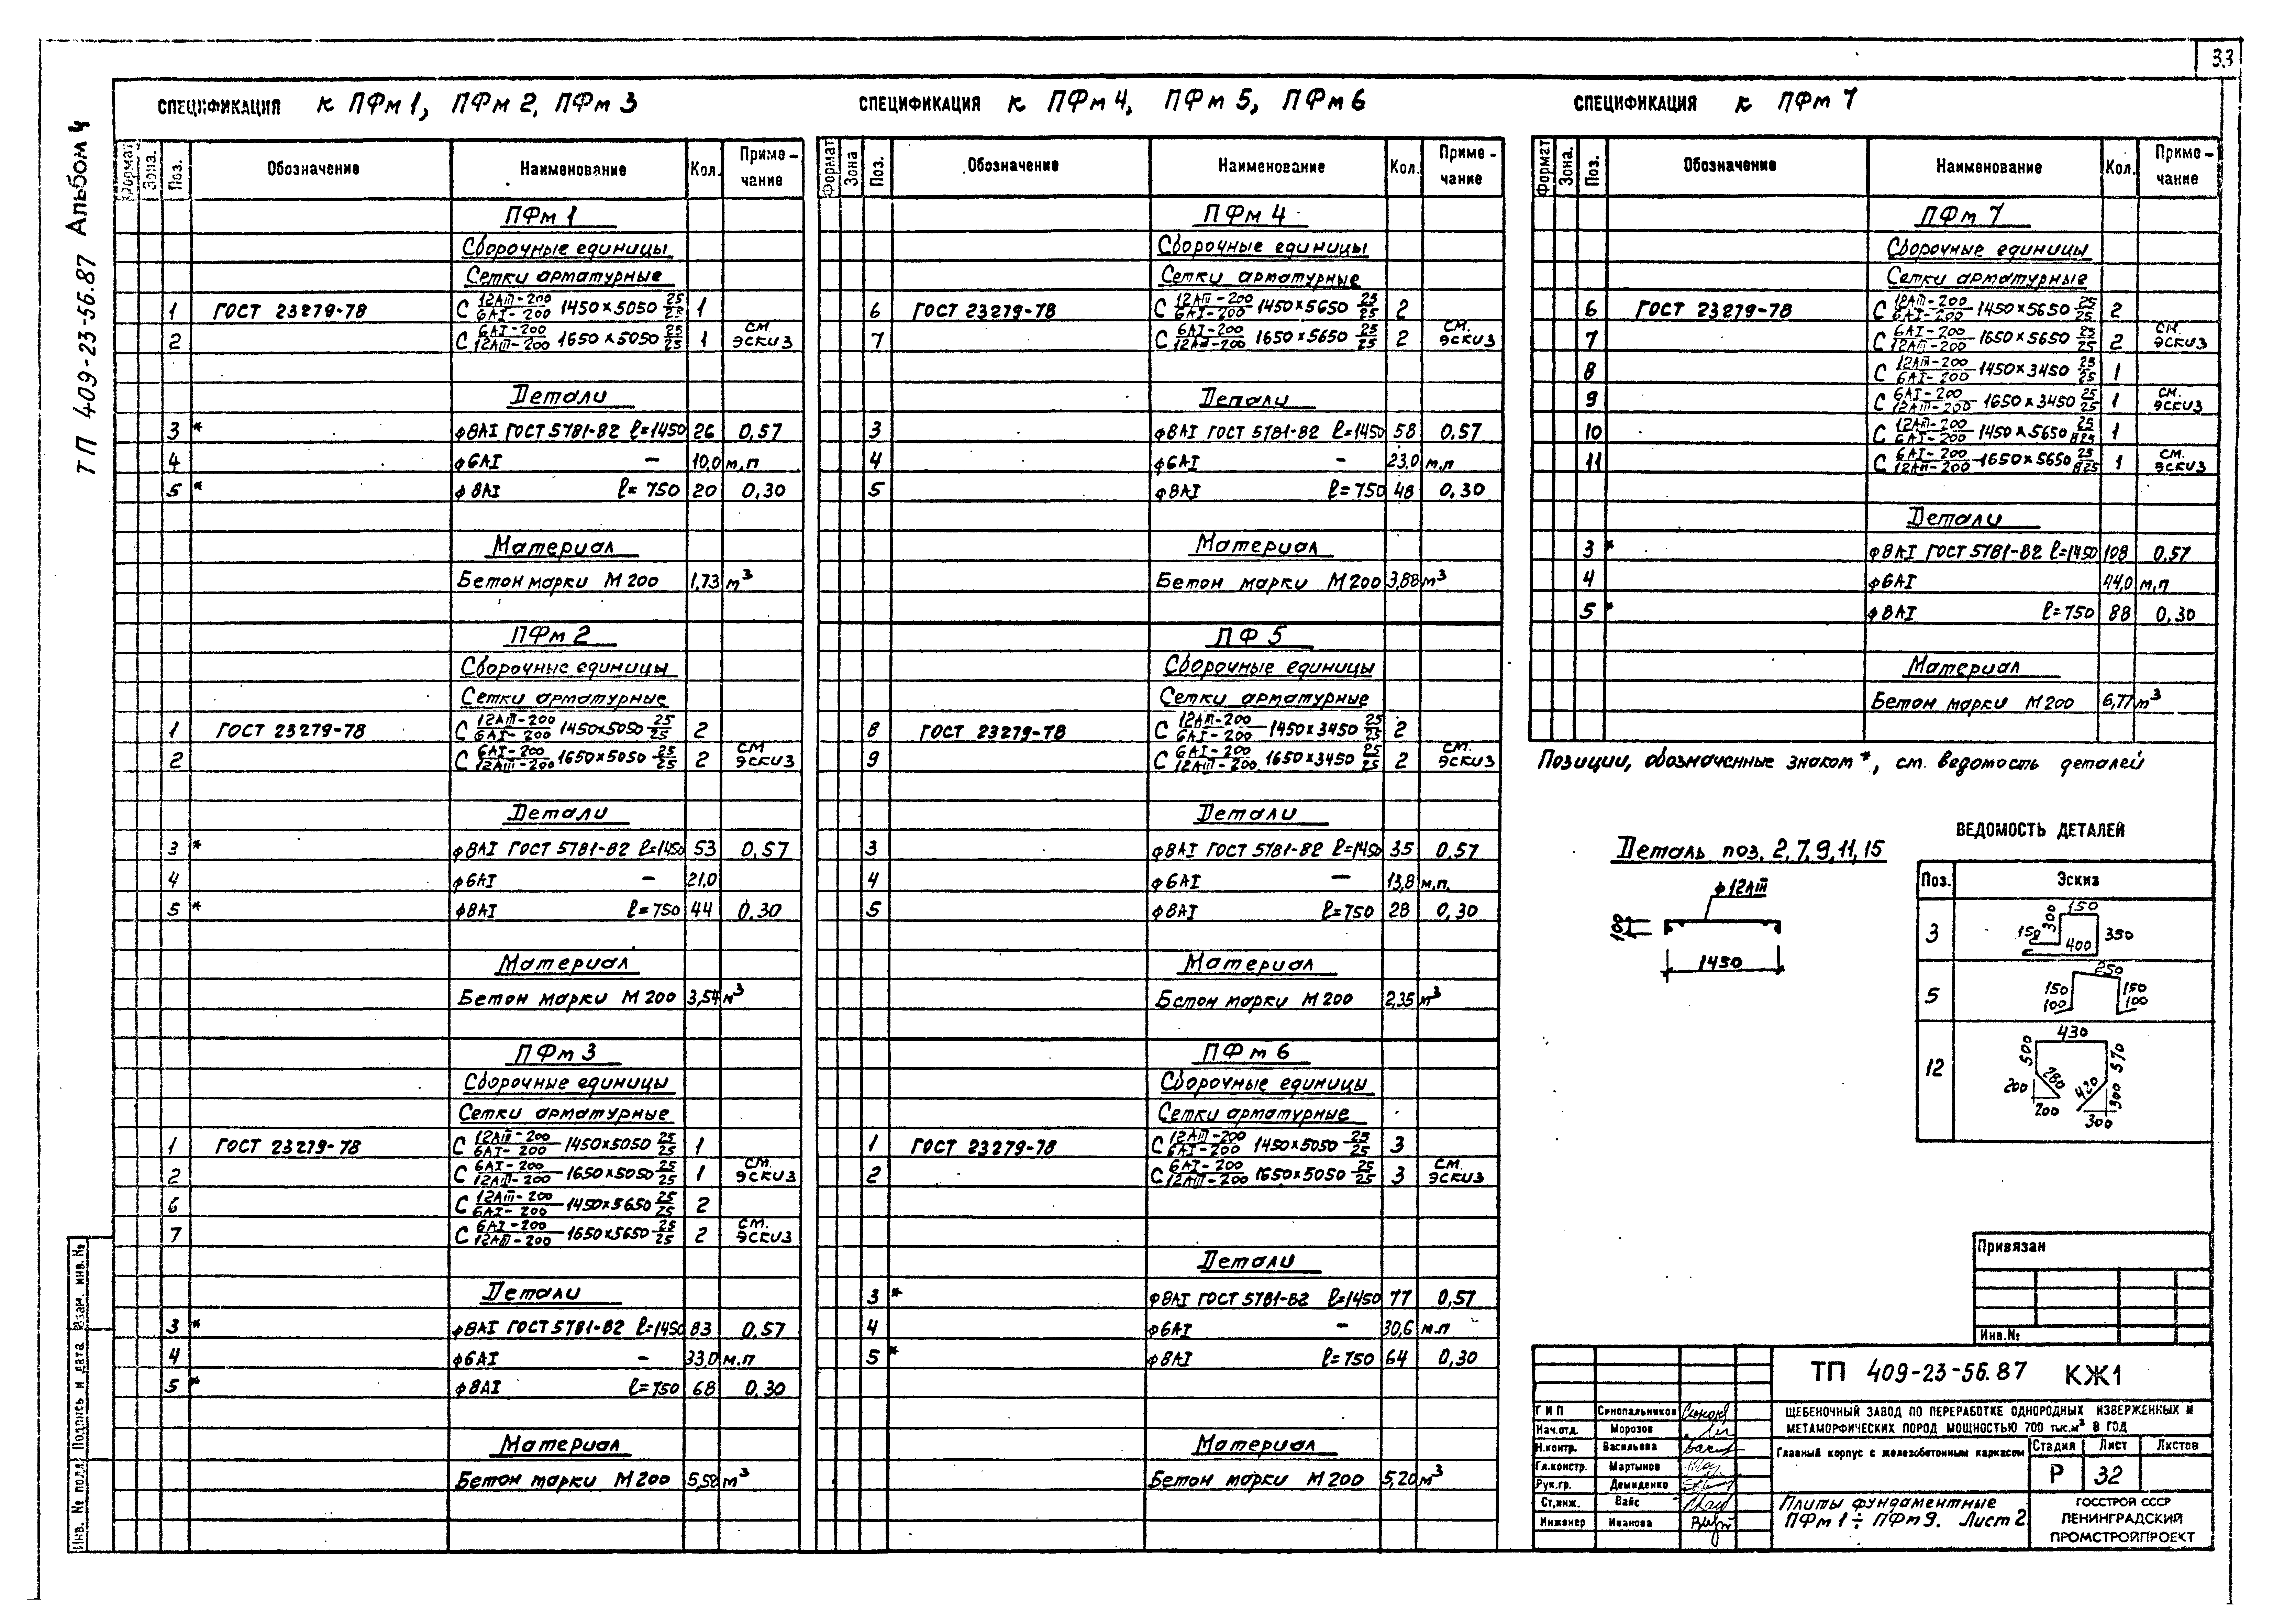 33
ТП 409-23-56.87 Альбом 4
СПЕЦИФИКАЦИЯ к ПФм 1, ПФм 2, ПФм 3
Формат Зона. Поз. Обозначение Наименование Кол. Приме-чание
ПФм 1
Сборочные единицы
Сетки арматурные
1 ГОСТ 23279-78 С 12АIII-200/6АI-200 1450×5050 25/25 1
2 С 6АI-200/12АIII-200 1650×5050 25/25 1 см. эскиз
Детали
3 * ф8АI ГОСТ 5781-82 ℓ=1450 26 0,57
4 ф6АI — 10,0 м,п
5 * ф8АI ℓ=750 20 0,30
Материал
Бетон марки М200 1,73 м³
ПФм 2
Сборочные единицы
Сетки арматурные
1 ГОСТ 23279-78 С 12АIII-200/6АI-200 1450×5050 25/25 2
2 С 6АI-200/12АIII-200 1650×5050 25/25 2 см эскиз
Детали
3 * ф8АI ГОСТ 5781-82 ℓ=1450 53 0,57
4 ф6АI — 21,0
5 * ф8АI ℓ=750 44 0,30
Материал
Бетон марки М200 3,54 м³
ПФм 3
Сборочные единицы
Сетки арматурные
1 ГОСТ 23279-78 С 12АIII-200/6АI-200 1450×5050 25/25 1
2 С 6АI-200/12АIII-200 1650×5050 25/25 1 см. эскиз
6 С 12АIII-200/6АI-200 1450×5650 25/25 2
7 С 6АI-200/12АIII-200 1650×5650 25/25 2 см. эскиз
Детали
3 * ф8АI ГОСТ 5781-82 ℓ=1450 83 0,57
4 ф6АI — 33,0 м.п
5 * ф8АI ℓ=750 68 0,30
Материал
Бетон марки М200 5,58 м³
СПЕЦИФИКАЦИЯ к ПФм 4, ПФм 5, ПФм 6
Формат Зона Поз. Обозначение Наименование Кол. Приме-чание
ПФм 4
Сборочные единицы
Сетки арматурные
6 ГОСТ 23279-78 С 12АIII-200/6АI-200 1450×5650 25/25 2
7 С 6АI-200/12АIII-200 1650×5650 25/25 2 см. эскиз
Детали
3 ф8АI ГОСТ 5781-82 ℓ=1450 58 0.57
4 ф6АI - 23,0 м,п
5 ф8АI ℓ=750 48 0,30
Материал
Бетон марки М200 3,88 м³
ПФ 5
Сборочные единицы
Сетки арматурные
8 ГОСТ 23279-78 С 12АIII-200/6АI-200 1450×3450 25/25 2
9 С 6АI-200/12АIII-200 1650×3450 25/25 2 см. эскиз
Детали
3 ф8АI ГОСТ 5781-82 ℓ=1450 35 0,57
4 ф6АI — 13,8 м,п.
5 ф8АI ℓ=750 28 0,30
Материал
Бетон марки М200 2,35 м³
ПФм 6
Сборочные единицы
Сетки арматурные
1 ГОСТ 23279-78 С 12АIII-200/6АI-200 1450×5050 25/25 3
2 С 6АI-200/12АIII-200 1650×5050 25/25 3 см. эскиз
Детали
3 * ф8АI ГОСТ 5781-82 ℓ=1450 77 0,57
4 ф6АI — 30,6 м.п
5 * ф8АI ℓ=750 64 0,30
Материал
Бетон марки М200 5,20 м³
СПЕЦИФИКАЦИЯ к ПФм 7
Формат Зона. Поз. Обозначение Наименование Кол. Приме-чание
ПФм 7
Сборочные единицы
Сетки арматурные
6 ГОСТ 23279-78 С 12АIII-200/6АI-200 1450×5650 25/25 2
7 С 6АI-200/12АIII-200 1650×5650 25/25 2 см. эскиз
8 С 12АIII-200/6АI-200 1450×3450 25/25 1
9 С 6АI-200/12АIII-200 1650×3450 25/25 1 см. эскиз
10 С 12АIII-200/6АI-200 1450×5650 25/825 1
11 С 6АI-200/12АIII-200 1650×5650 25/825 1 см. эскиз
Детали
3 * ф8АI ГОСТ 5781-82 ℓ=1450 108 0,57
4 ф6АI 44,0 м,п
5 * ф8АI ℓ=750 88 0,30
Материал
Бетон марки М200 6,77 м³
Позиции, обозначенные знаком *, см. ведомость деталей
Деталь поз. 2,7,9,11,15
ф12АIII
1450
ВЕДОМОСТЬ ДЕТАЛЕЙ
Поз. Эскиз
3 150 300 150 400 350
5 250 150 100 150 100
12 430 500 570 280 420 200 200 300 300
Привязан
Инв.№
ТП 409-23-56.87 КЖ1
ЩЕБЕНОЧНЫЙ ЗАВОД ПО ПЕРЕРАБОТКЕ ОДНОРОДНЫХ ИЗВЕРЖЕННЫХ И
МЕТАМОРФИЧЕСКИХ ПОРОД МОЩНОСТЬЮ 700 тыс.м³ В ГОД
Главный корпус с железобетонным каркасом
Стадия Лист Листов
Р 32
ГИП Синопальников
Нач.отд. Морозов
Н.контр. Васильева
Гл.констр. Мартынов
Рук.гр. Демиденко
Ст,инж. Вайс
Инженер Иванова
Плиты фундаментные
ПФм 1 ÷ ПФм 9. Лист 2
ГОССТРОЙ СССР
ЛЕНИНГРАДСКИЙ
ПРОМСТРОЙПРОЕКТ
Инв. № подл. Подпись и дата Взам. инв.№